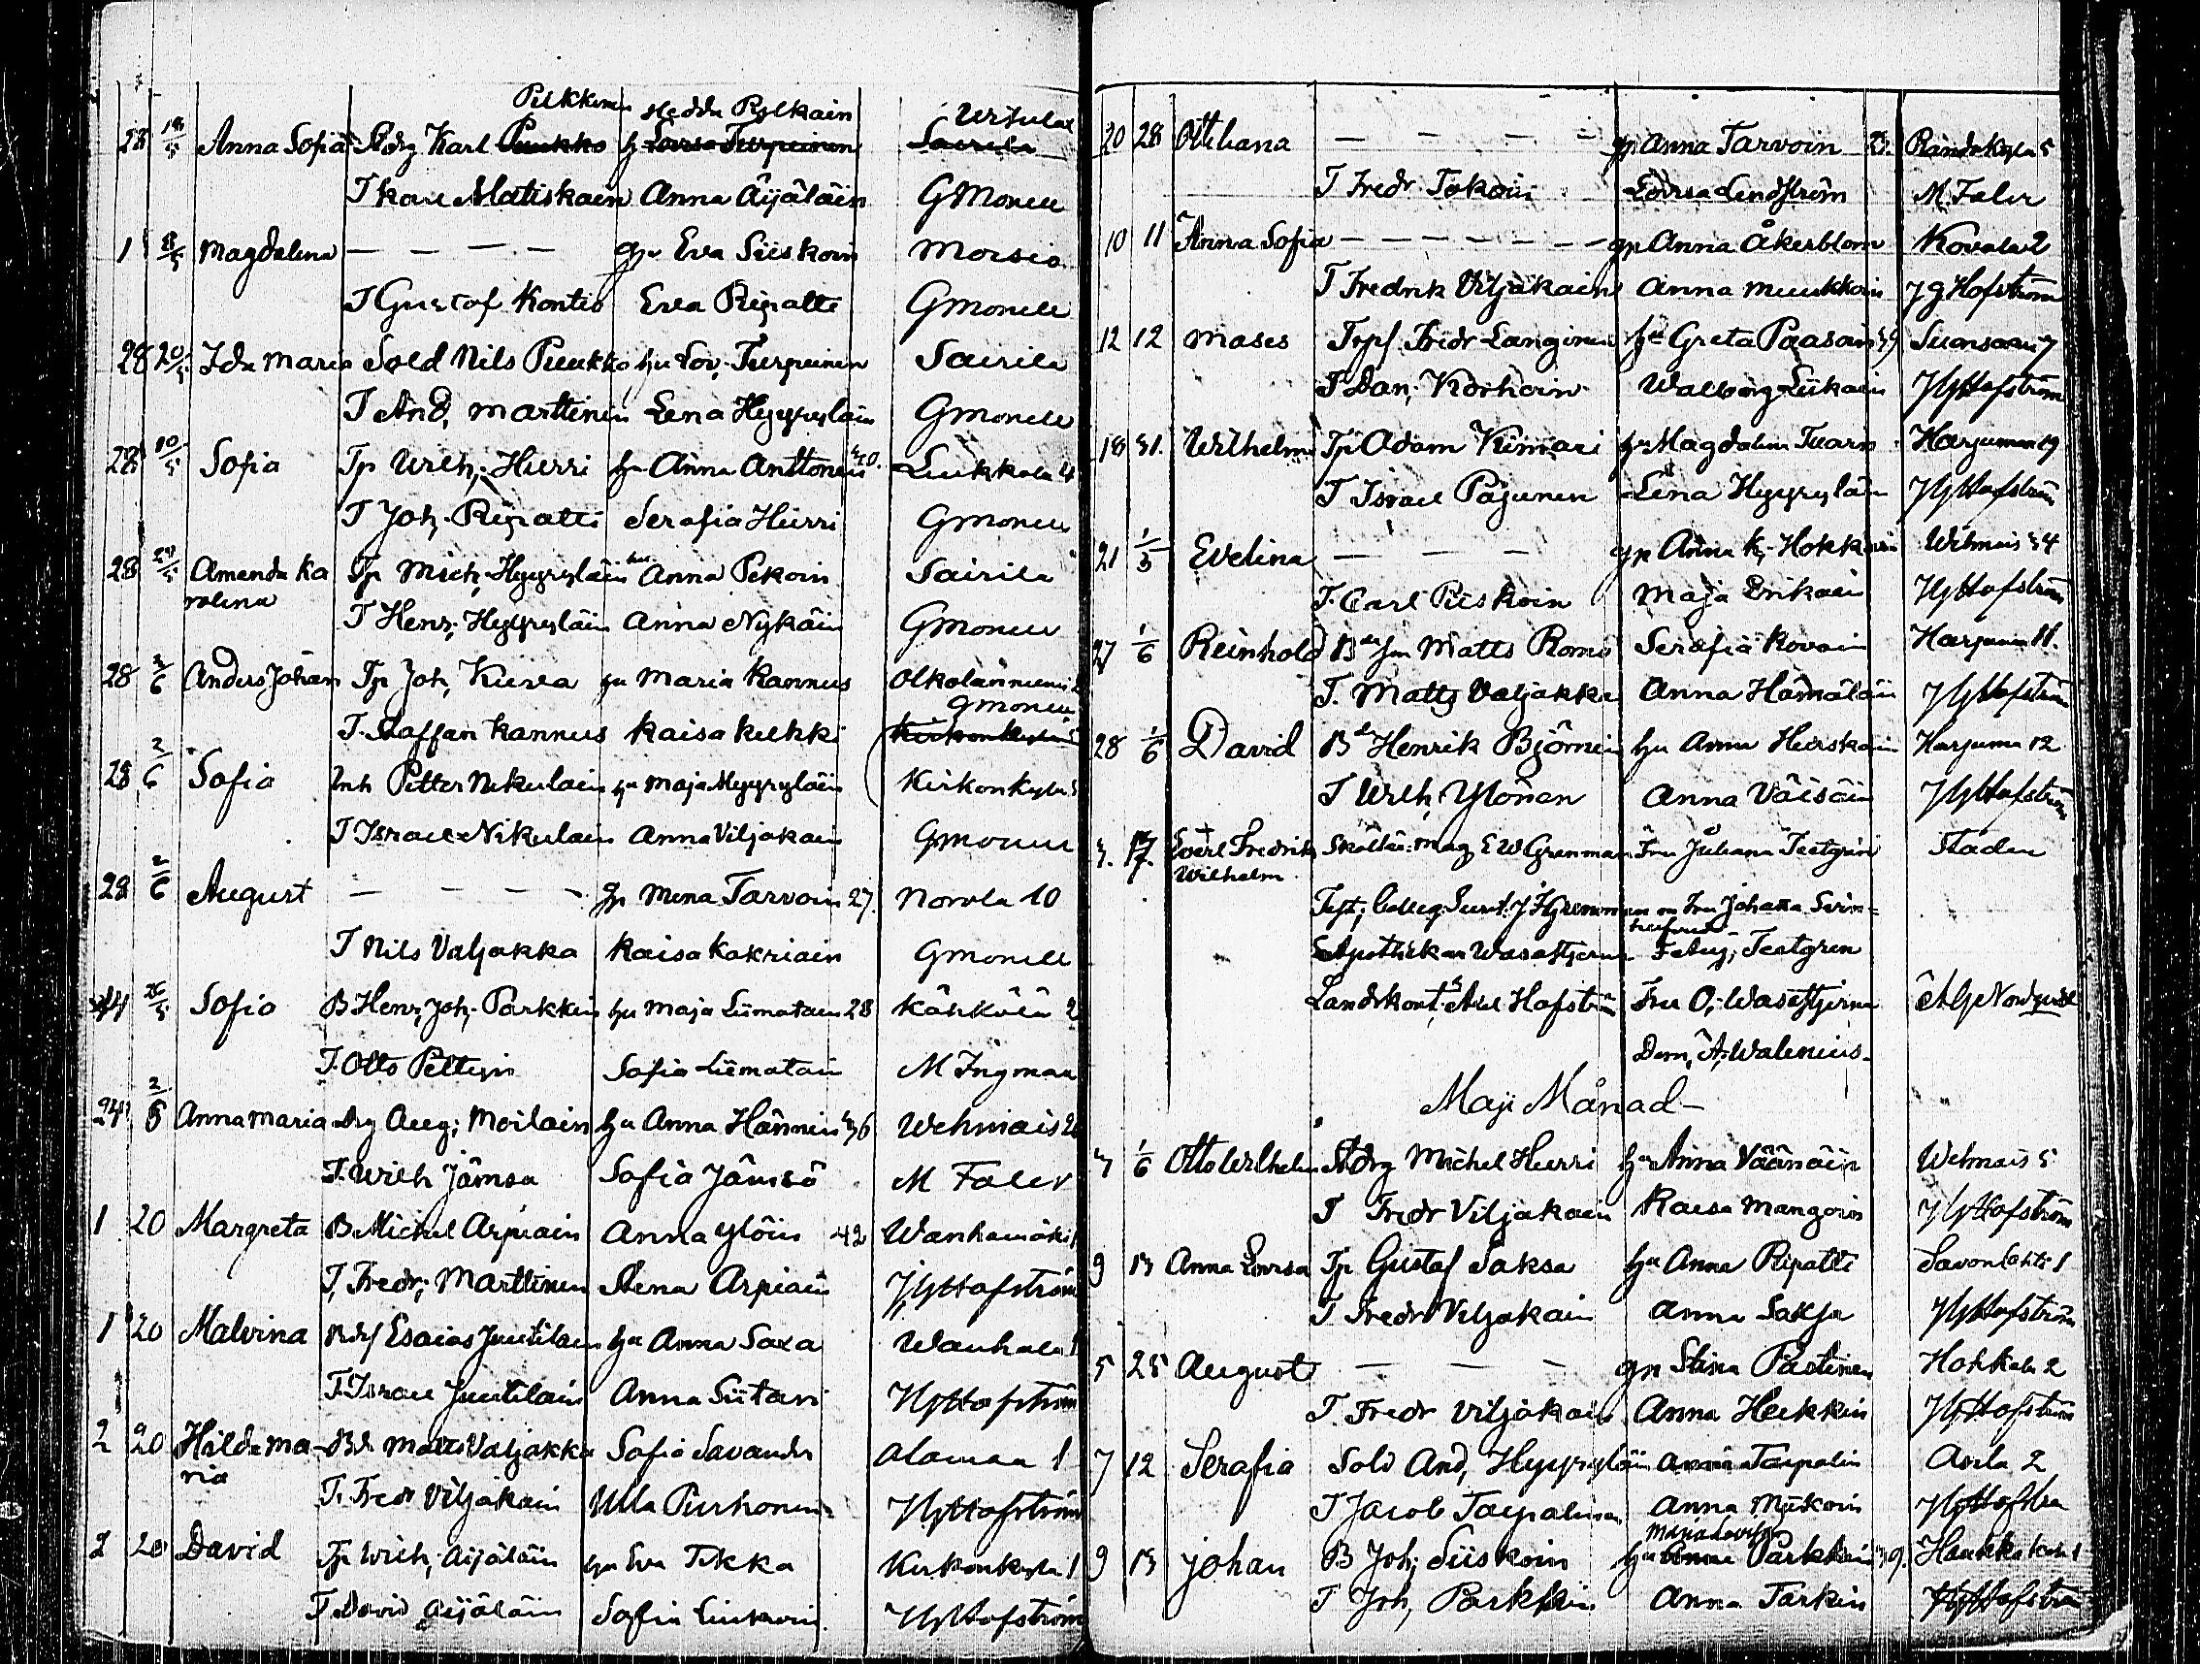 Pulkkinen Hedda Pylkäin Ursula
28 18/5 Anna Sofia Adrg Karl Puukko h Lovisa Turpeinen Sairila
T Karl Matiskain Anna Äijäläin G Monell
1 8/5 Magdalena — — — — gp Eva Siiskoin Moisio
T Gustof Kontio Eva Ripatti G Monell
28 20/5 Ida Maria Sold Nils Puukko hu Lov, Turpeinen Sairila
T And, Marttinen Lena Hyyryläin G Monell
28 10/5 Sofia Tp Wilh; Hurri hu Anna Anttonen Liukkola 4
T Joh, Ripatti Serafia Hurri G Monell
28 Amanda Ka Tp Mich, Hyyryläin Anna Pekoin Sairila
rolina
T Henr; Hyyryläin Anna Nykäin G Monell
28 2/6 Anders Johan Tp Joh, Kurva hu Maria Kannus Olkolanniemi
G Monell
T. Staffan Kannus Kaisa Kukki Kirkonkylä
28 2/6 Sofia Inh Petter Nikulain hu Maja Hyyryläin Kirkonkylä
T Israel Nikulain Anna Viljakain G Monell
28 2/6 August — — — — gp Mena Tarvoin 27. Norola 10
T Nils Valjakka Kaisa Kakriain G Monell
Sofia B Henr, Joh, Parkkin hu Maja Liimatain 28 Kähkölä 2
T. Otto Peltein Sofia Liimatain M Ingman
24 2/5 Anna Maria Drg Aug; Moilain hu Anna Hännin 36 Wehmais 2
T. Wilh Jämsä Sofia Jämsä M Faler
1 20 Margreta B Michel Arpiain Anna Ylöin 42 Wanhamäki
T, Fredr; Marttinen Stena Arpiain J G Hofström
1 20 Malvina Esaias Juutilain hu Anna Saxa Wanhala 1
T. Israel Juutilain Anna Siitari J G Hofström
2 20 Hilda Ma- Bd Matts Valjakka Sofia Savander Alamaa 1
ria
T. Fredr Viljakain Ulla Purhonen J G Hofström
2 20 David Tp Wilh; Äijäläin hu Eva Tikka Kirkonkylä 1
T David Äijäläin Sofia Liukoin J G Hofström
20 28 Ottiliana — — — — gp Anna Tarvoin 23. Randakylä 5
T Fredr Tokoin Lovisa Lindström M. Faler
10 11 Anna Sofia — — — — — gp Anna Åkerblom Kovala 2
T Fredrik Viljakain Anna Muukkoin J G Hofström
12 12 Moses Torpf Fredr Langinen hu Greta Paasoin 39 Suonsaari 7
T Dan, Korhoin Walborg Liikain J G Hofström
18 31. Wilhelm Tp Adam Kinnari hu Magdalena Tuarn Harjumaa 19
T Israel Pajunen Lena Hyyryläin J G Hofström
21 1/5 Evelina — — — gp Anna K, Hokkain Wehmais 34
T. Carl Piiskoin Maja Erikain J G Hofström
27 1/6 Reinhold Matts Romo Serafia Kovain Harjumaa 11.
T. Matts Valjakka Anna Hämäläin J G Hofström
28 1/6 David Bd Henrik Björnin hu Anna Hirskain Harjumaa 12
T Wilh, Ylönen Anna Väisäin J G Hofström
3. Evert Fredrik E W Grenman Fru Juliana Testgren Staden
Wilhelm
J H Grenman Fru Johanna
Apothekar Wasastjerna Testgren
Landskont, Axel Hofström Fru O, Wasastjerna A G Nordqvist
Dem, A; Walenius.
Maji Månad —
3 1/6 Otto Wilhelm Adrg Michel Hurri hu Anna Väänäin Wehmais 5
T Fredr Viljakain Kaisa Mangoin J G Hofström
9 13 Anna Lovisa Tp Gustaf Saksa hu Anna Ripatti Savonlahti 1
T Fredr Viljakain Anna Saksa J G Hofström
5 25 August — — — gp Stina Pastinen Hokkala 2
T. Fredr Viljakain Anna Heikkin J G Hofström
7 12 Serafia Sold And, Hyyryläin Anna Taipalin Asila 2
T Jacob Taipalinen Anna Mykoin J G Hofström
Maria Lovisa
9 13 Johan B Joh; Siiskoin hu Anna Parkkin 39. Haukkakorh 1
T Joh, Parkkin Anna Tarkin J G Hofström